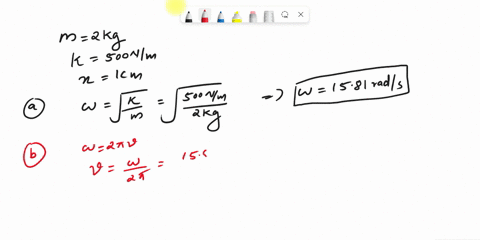 m = 2kg
K = 500N/m
x = 1cm
(a) ω = √(K/m) = √(500N/m / 2kg) → ω = 15.81 rad/s
(b) ω = 2πν
ν = ω/2π = 15.